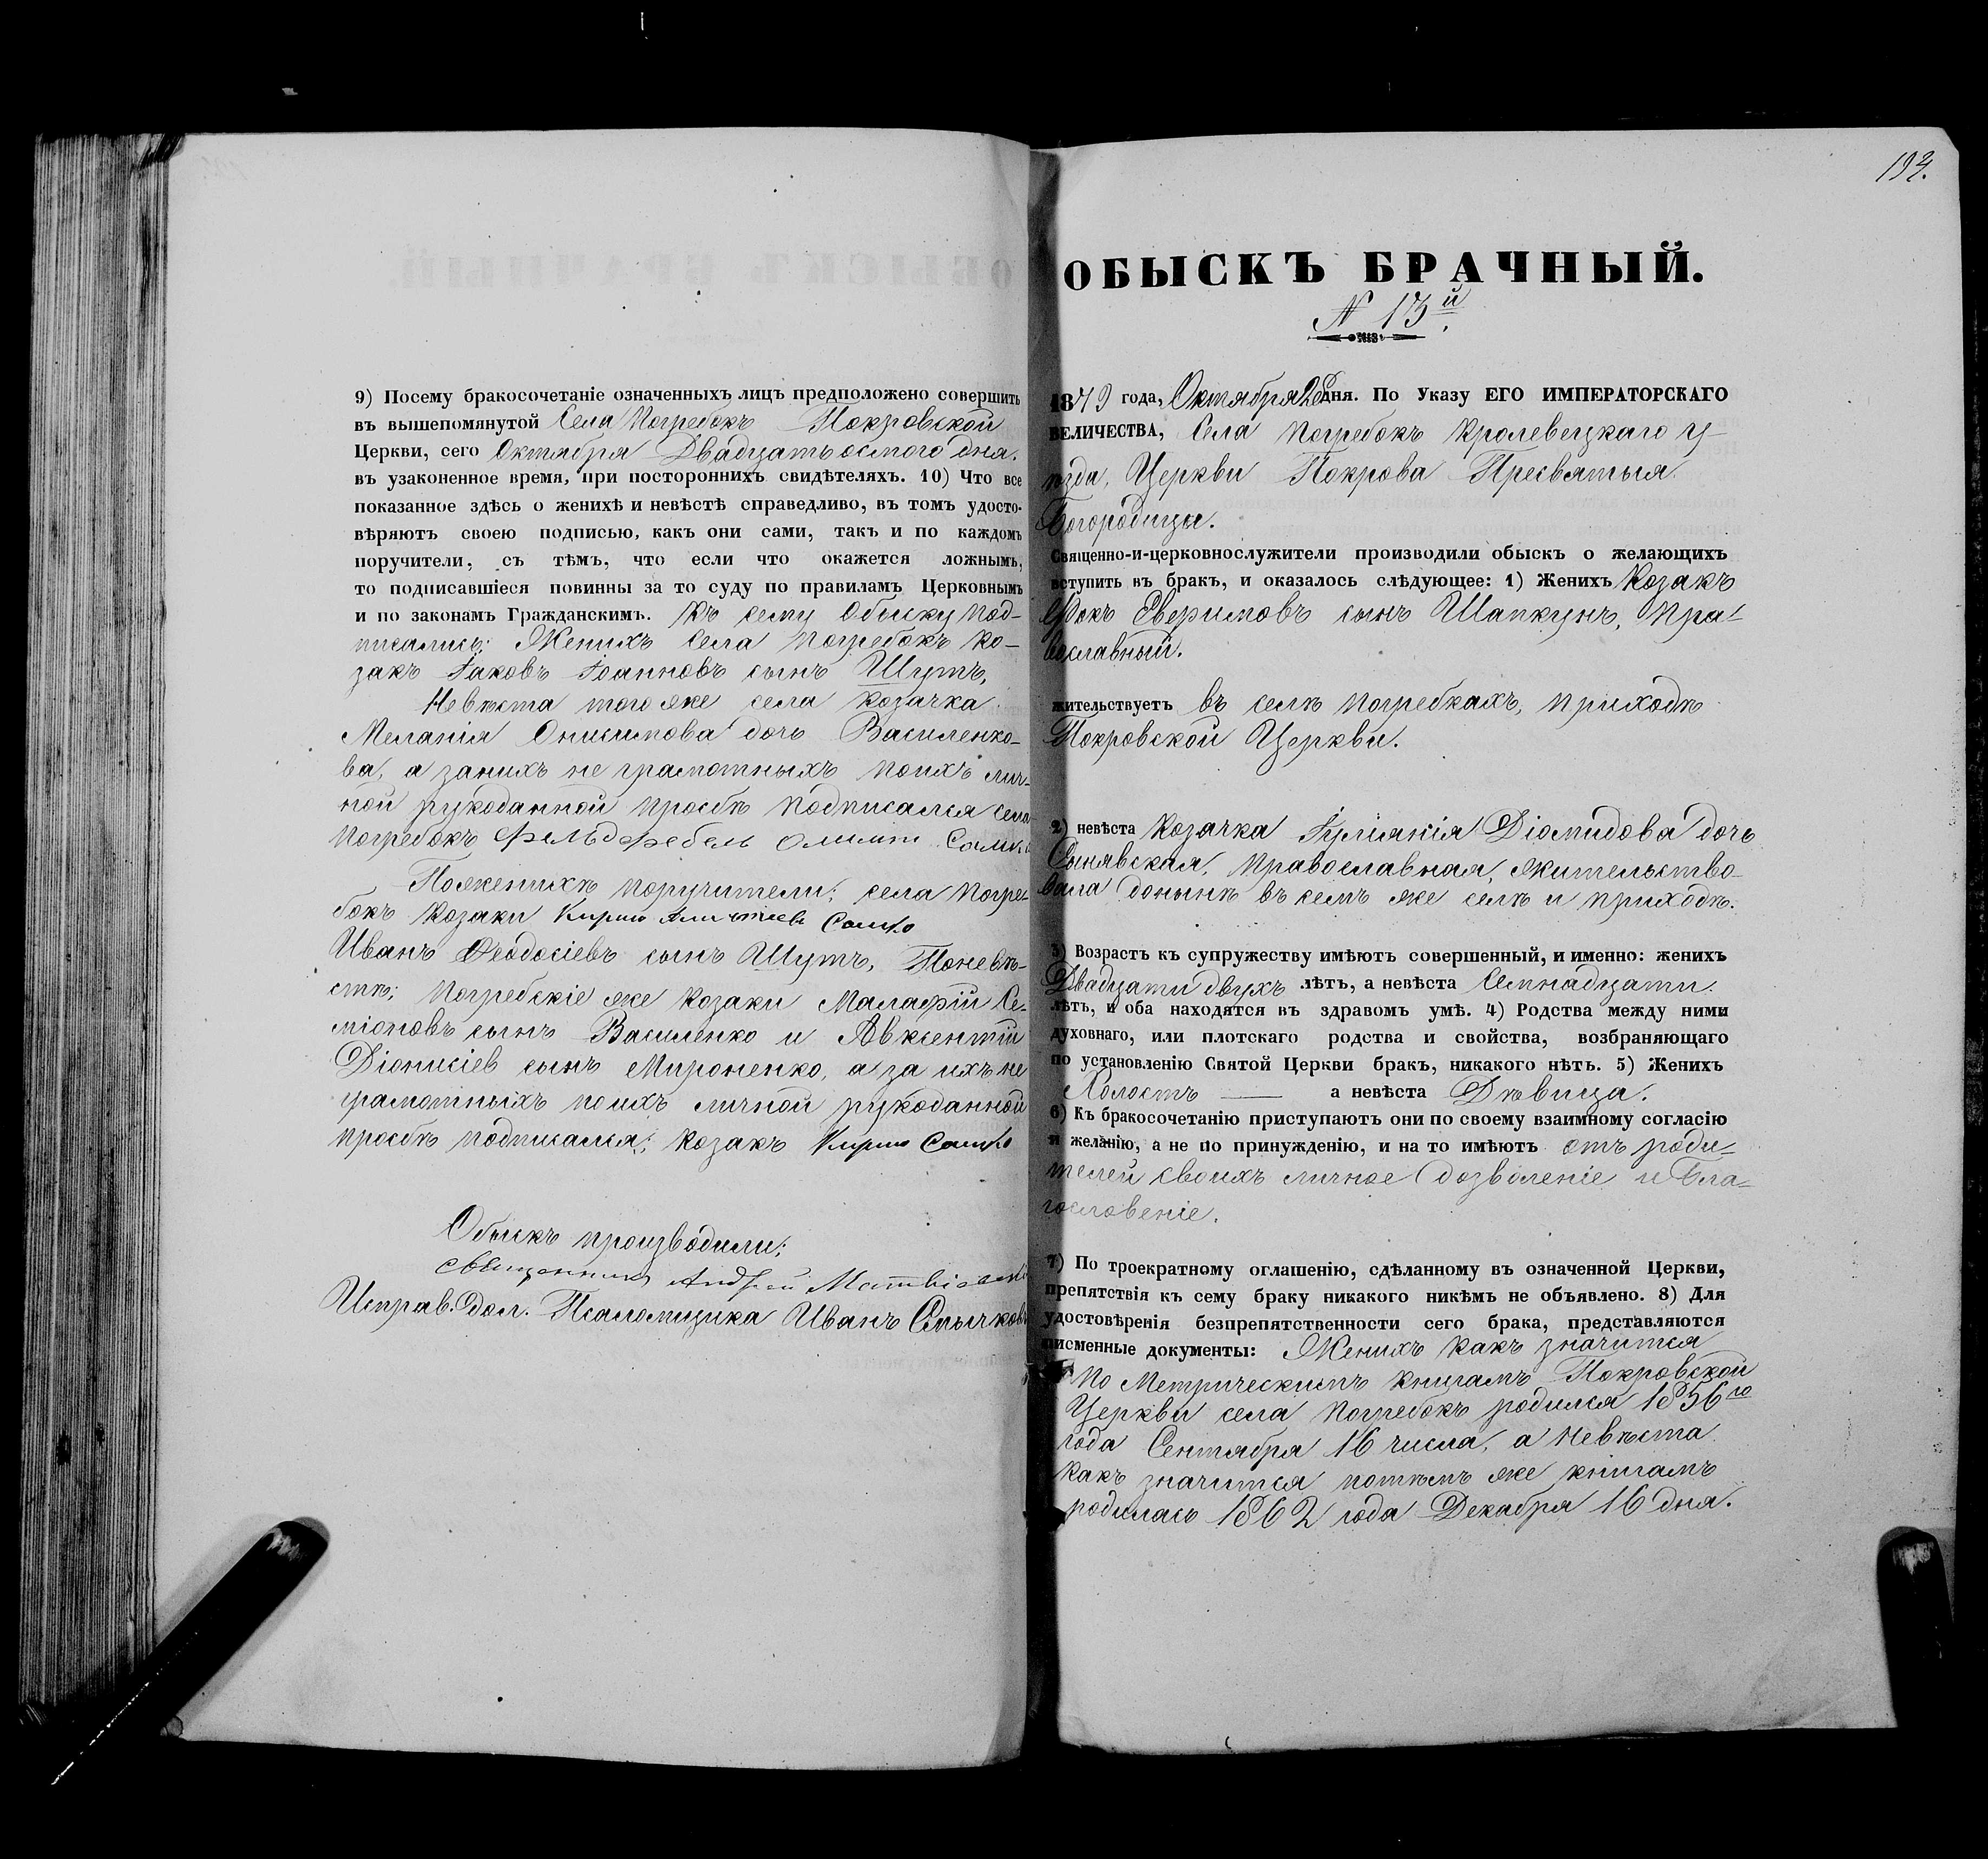 9) Посему бракосочетаніе означенныхъ лицъ предположено совершить
въ вышепомянутой Села Погребокъ Покровской
Церкви, сего Октября Двадцать осмого дня.
въ узаконенное время, при постороннихъ свидѣтеляхъ. 10) Что все
показанное здѣсь о женихѣ и невѣстѣ справедливо, въ томъ удосто-
вѣряютъ своею подписью, какъ они сами, такъ и по каждомъ
поручители, съ тѣмъ, что если что окажется ложнымъ,
то подписавшіеся повинны за то суду по правиламъ Церковнымъ
и по законамъ Гражданскимъ. Къ сему Обыску под-
писались: Женихъ села Погребокъ ко-
закъ Іаковъ Іоанновъ сынъ Шутъ,
Невѣста того же села козачка
Меланія Онисимова дочь Василенко-
ва, а занихъ не грамотныхъ поихъ лич-
ной рукоданной просбѣ подписался села
Погребокъ фельдфебель Самко
Поженихѣ поручители; села Погре-
бокъ козаки Кирило Самко
Иванъ Феодосіевъ сынъ Шутъ, Поневѣ-
стѣ; Погребскіе же козаки Малафій Се-
міоновъ сынъ Василенко и Авксентій
Діонисіев сынъ Мироненко, а за ихъ не
грамотныхъ поихъ личной рукоданной
просбѣ подписался; козакъ Кирило Самко
Обыскъ производили;
священникъ Андрей
Исправ. дол. Псаломщика Иванъ Смычковъ
193.
ОБЫСКЪ БРАЧНЫЙ.
N 13й
1879 года, Октября 28 дня. По Указу ЕГО ИМПЕРАТОРСКАГО
ВЕЛИЧЕСТВА, Села Погребокъ Кролевецкаго у-
ѣзда, Церкви Покрова Пресвятыя
Богородицы.
Священно-и-церковнослужители производили обыскъ о желающихъ
вступить въ бракъ, и оказалось слѣдующее: 1) Женихъ Козакъ
Фокъ Еверимовъ сынъ Шапкунъ, Пра-
вославный.
жительствуетъ въ селѣ Погребкахъ, приходѣ
Покровской Церкви.
2) невѣста Козачка Іуліянія Діомидова дочь
Сынявская, православная, жительство-
вала донынѣ въ семъ же селѣ и приходѣ.
3) Возрастъ къ супружеству имѣютъ совершенный, и именно: женихъ
Двадцати двухъ лѣтъ, а невѣста Семнадцати
лѣтъ, и оба находятся въ здравомъ умѣ. 4) Родства между ними
духовнаго, или плотскаго родства и свойства, возбраняющаго
по установленію Святой Церкви бракъ, никакого нѣтъ. 5) Женихъ
Холостъ — а невѣста Дѣвица.
6) Къ бракосочетанію приступаютъ они по своему взаимному согласію
и желанію, а не по принужденію, и на то имѣютъ отъ роди-
телей своихъ личное дозволеніе и Бла-
гословеніе.
7) По троекратному оглашенію, сдѣланному въ означенной Церкви,
препятствія къ сему браку никакого никѣмъ не объявлено. 8) Для
удостовѣренія безпрепятственности сего брака, представляются
писменные документы: Женихъ какъ значится
По Метрическимъ книгамъ Покровской
Церкви села Погребокъ родился 1856го
года Сентября 16 числа, а невѣста
какъ значится потѣмъ же книгамъ
родилась 1862 года Декабря 16 дня.